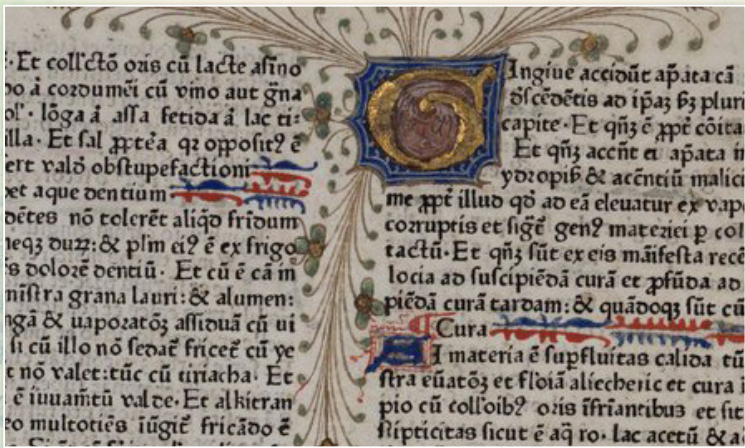 Et coll'ctõ oris cũ lacte asino
ꝺo á corꝺumẽi cũ vino aut g̃na
ol'· lõga á assa fetiꝺa á lac ti⸗
illa · Et sal ꝓpt'ea qꝛ opposit? ẽ
ert valꝺ obstupefactioni
et aque ꝺentium
ꝺẽtes nõ tolerẽt aliqꝺ friꝺum
neqꝫ ꝺuꝛꝫ: & pl'm ei? ẽ ex frigo
s ꝺolorẽ ꝺentiũ · Et cũ ẽ cã in
nistra grana lauri: & alumen:
ngã & uaporatõꝫ assiꝺuã cũ ui
si cũ illo nõ seꝺat̃ fricet̃ cũ ye
t nõ valet: tũc cũ tiriacha · Et
ẽ iuuam̃tũ valꝺe · Et alkitran
eo multotiẽs iũgit̃ fricãꝺo ẽ
Gingiue acciꝺũt ap̃ata cã
ꝺscẽꝺẽtis aꝺ ip̃aꝫ sꝫ pluri
capite · Et qñꝫ ẽ ꝓpt̃ cõita
Et qñꝫ accñt ei ap̃ata in
yꝺropib̃ & acc̃ntiũ malici
me ꝓpt̃ illuꝺ qꝺ aꝺ eã eleuatur ex vapo
corruptis et sigt̃ gen? materiei p col
tactũ · Et qñꝫ sũt ex eis mãifesta recẽ
locia aꝺ suscipiẽꝺã curã et ꝓfũꝺa aꝺ
piẽꝺã curã tarꝺam: & quãꝺoqꝫ sũt cũ
Cura
SI materia ẽ sup̃fluitas caliꝺa tũ
stra eũatõꝫ et fl'oiã aliecheric et cura i
pio cũ coll'oib? oris ĩfriꝺantibus et sit
stipticitas sicut ẽ aq̃ ro· lac acetũ & a